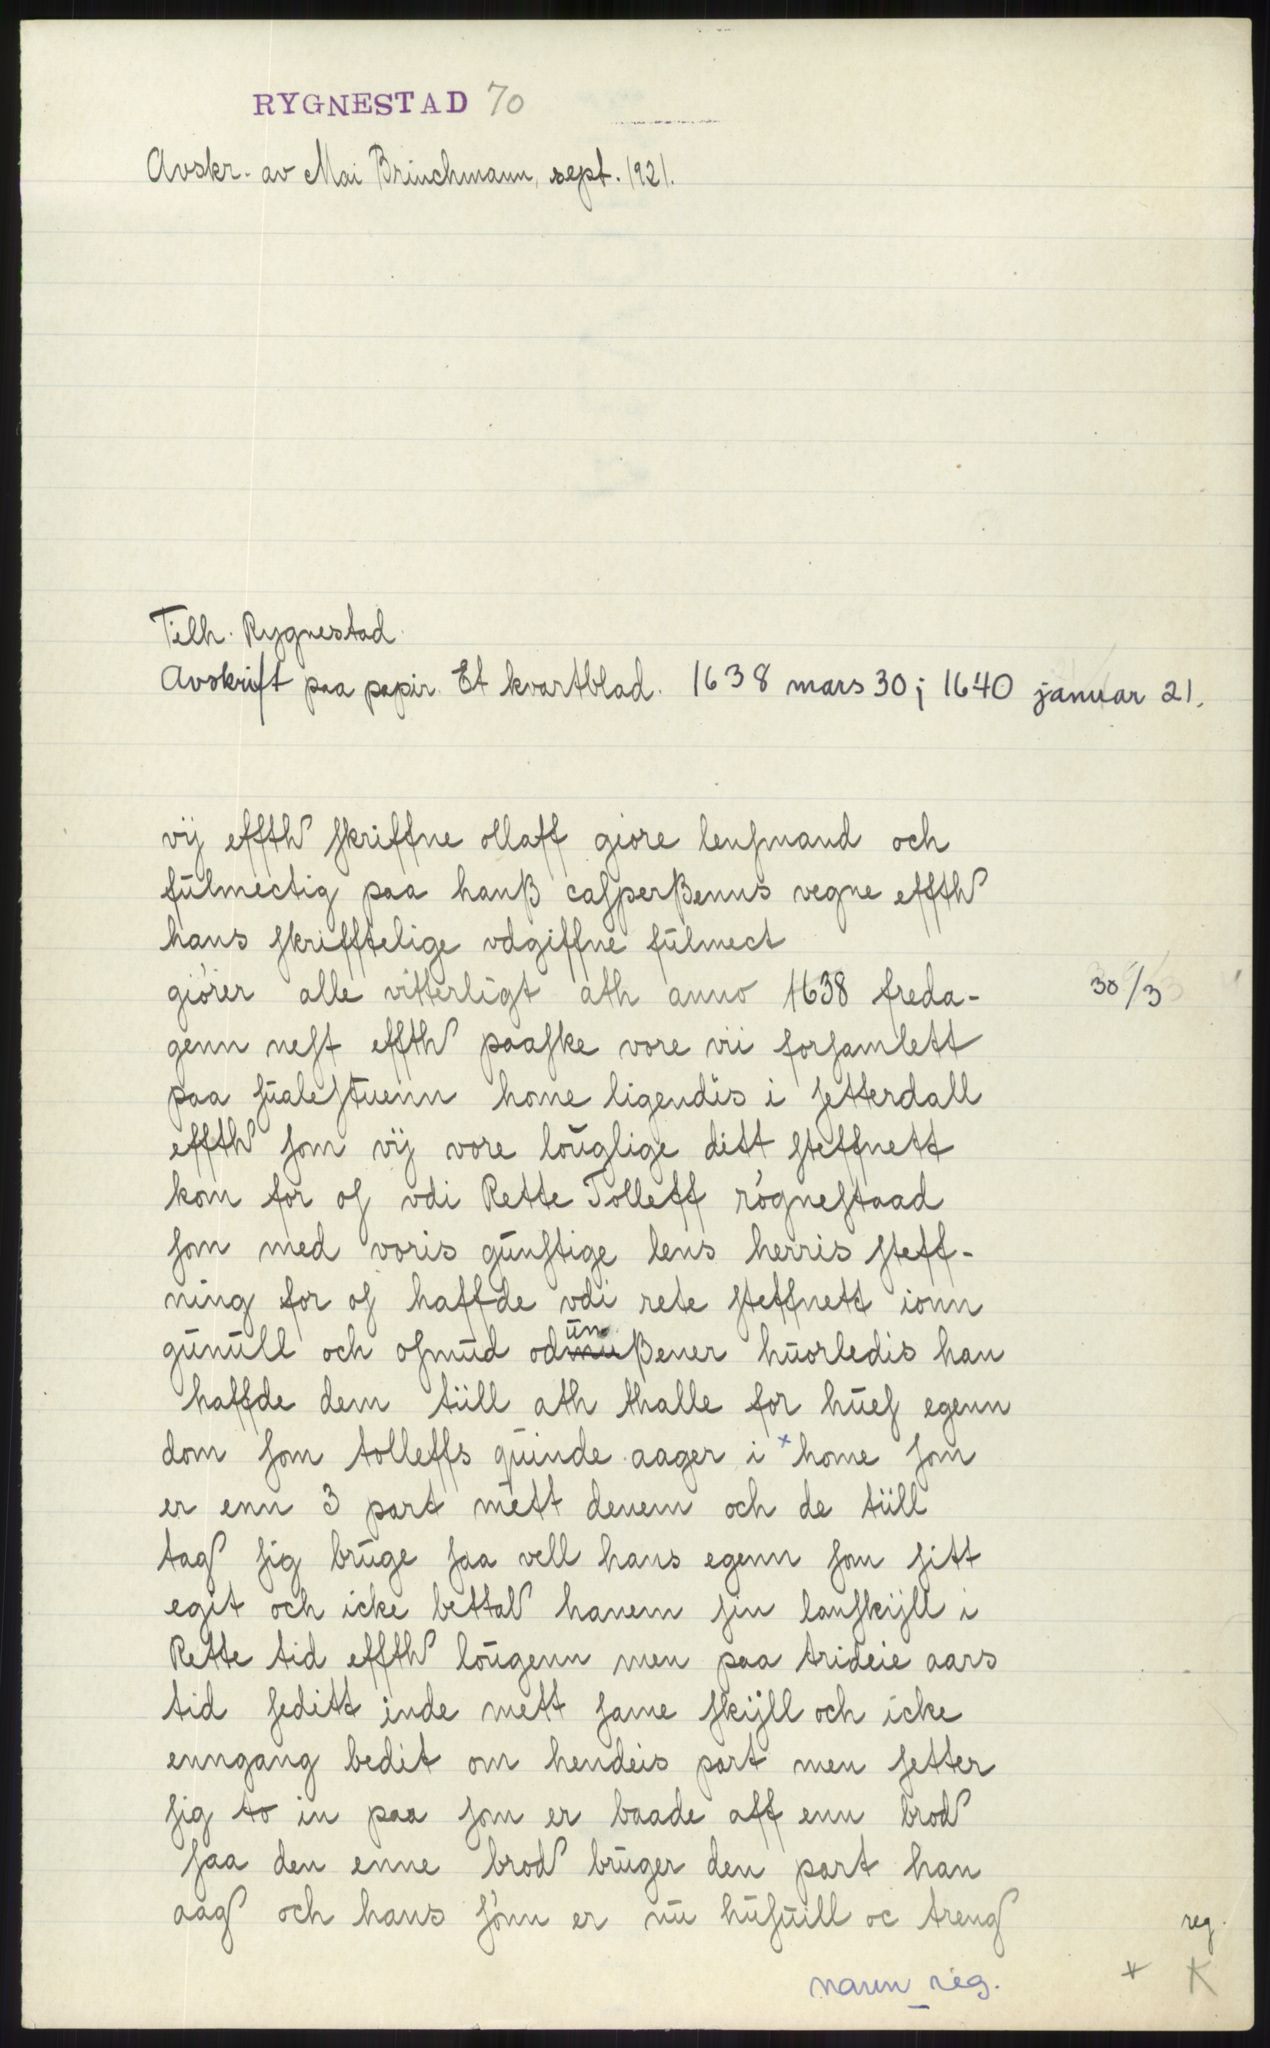 RYGNESTAD 70
Avskr. av Mai Brinchmann, sept. 1921.
Tilh. Rygnestad.
Avskrift paa papir. Et kvartblad. 1638 mars 30; 1640 januar 21.
vij effth ſkriffne ollaff giore lenſmand och
fŭlmectig paa hanß caſperßenns vegne effth
hans ſkrifftelige vdgiffne fŭlmect
giörer alle vitterligt ath anno 1638 freda-
30/3
genn neſt effth paaſke vore vii forſamlett
paa ſŭaleſtŭenn home ligendis i ſetterdall
effth ſom vij vore loŭglige ditt ſteffnett
kom for oſ vdi Rette Tolleff rögneſtaad
ſom med voris gŭnſtige lens herris ſteff-
ning for oſ haffde vdi rete ſteffnett ionn
gŭnŭll och oſmŭd odŭnßener hŭorledis han
haffde dem tiill ath thalle for hŭeſ egenn
dom ſom tolleffs qŭinde aager i + home ſom
er enn 3 part mett denem och de tiill
tag ſig brŭge ſaa vell hans egenn ſom ſitt
egit och icke bettal hanem ſin lanſkijll i
Rette tid effth loŭgenn men paa trideie aars
tid ſeditt inde mett ſame ſkijll och icke
enngang bedit om hendeis part men ſetter
ſig to in paa ſom er baade aff enn brod
ſaa den enne brod brŭger den part han
aag och hans ſönn er nŭ hŭſŭill oc treng
reg.
navn_reg.
+ K